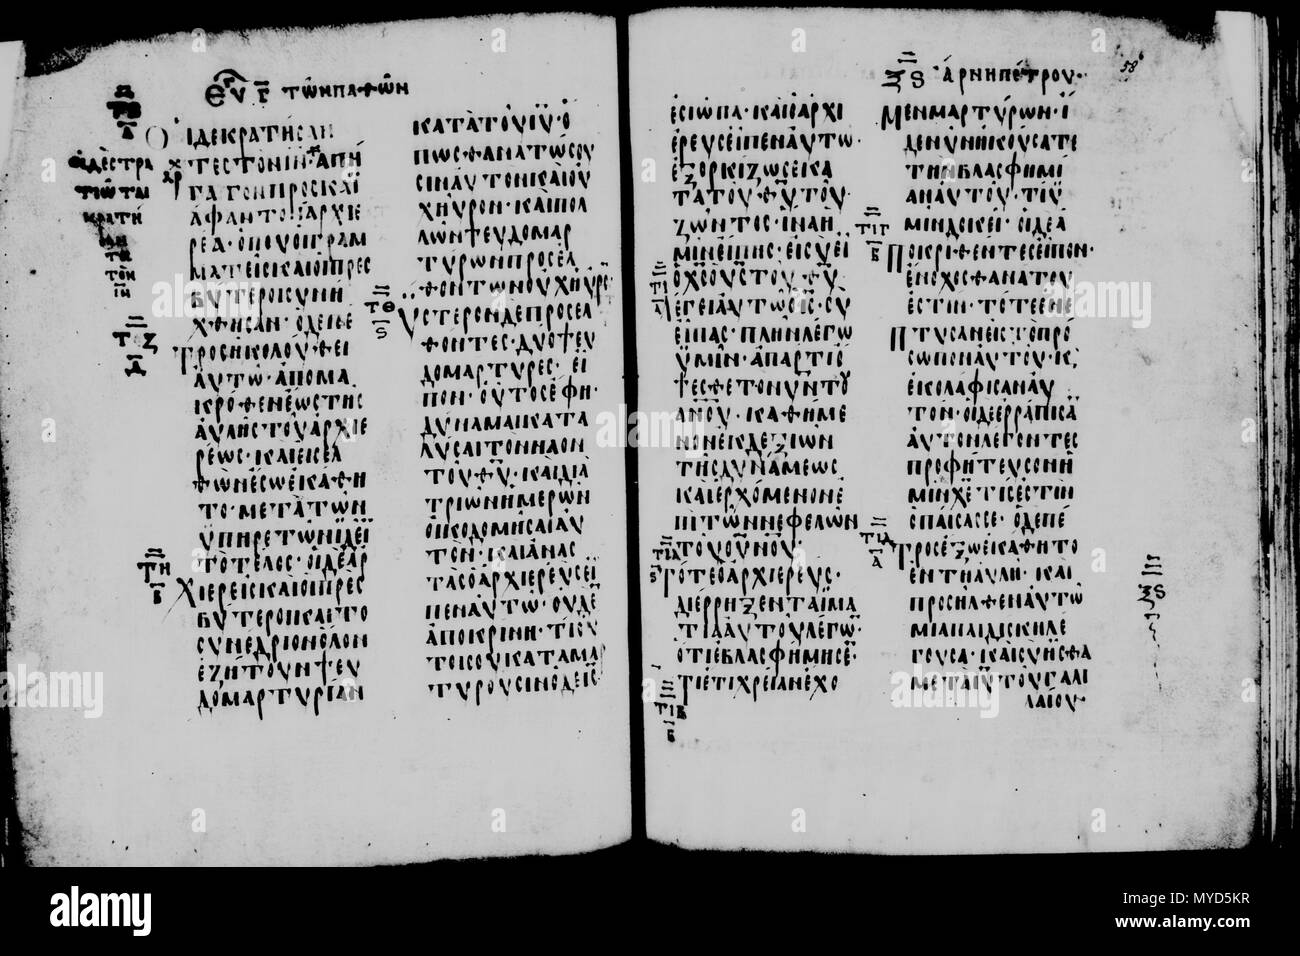 ΕΥ Γ ΤΩΝ ΠΑΘΩΝ
ΟΙΔΕΣΤΡΑ
ΤΙΩΤΑΙ
ΚΡΑΤΗ
ΤΟΝ
ΙΝ
ΤϚ
Α
ΤΖ
Δ
ΤΗ
Β
ΟΙΔΕΚΡΑΤΗΣΑΝ
ΤΕΣΤΟΝΙΝ·ΑΠΗ
ΓΑΓΟΝΠΡΟΣΚΑΪ
ΑΦΑΝΤΟΝΑΡΧΙΕ
ΡΕΑ·ΟΠΟΥΟΙΓΡΑΜ
ΜΑΤΕΙΣΚΑΙΟΙΠΡΕΣ
ΒΥΤΕΡΟΙΣΥΝΗ
ΧΘΗΣΑΝ·ΟΔΕΠΕ
ΤΡΟΣΗΚΟΛΟΥΘΕΙ
ΑΥΤΩ·ΑΠΟΜΑ
ΚΡΟΘΕΝΕΩΣΤΗΣ
ΑΥΛΗΣΤΟΥΑΡΧΙΕ
ΡΕΩΣ·ΚΑΙΕΙΣΕΛ
ΘΩΝΕΣΩΕΚΑΘΗ
ΤΟ·ΜΕΤΑΤΩΝ
ΥΠΗΡΕΤΩΝΪΔΕΪ
ΤΟΤΕΛΟΣ·ΟΙΔΕΑΡ
ΧΙΕΡΕΙΣΚΑΙΟΙΠΡΕΣ
ΒΥΤΕΡΟΙΚΑΙΤΟ
ΣΥΝΕΔΡΙΟΝΟΛΟΝ
ΕΖΗΤΟΥΝΨΕΥ
ΔΟΜΑΡΤΥΡΙΑΝ
ΚΑΤΑΤΟΥΙΥ·Ο
ΠΩΣΘΑΝΑΤΩΣΟΥ
ΣΙΝΑΥΤΟΝΚΑΙΟΥ
ΧΗΥΡΟΝ·ΚΑΙΠΟΛ
ΛΩΝΨΕΥΔΟΜΑΡ
ΤΥΡΩΝΠΡΟΣΕΛ
ΘΟΝΤΩΝΟΥΧΗΥΡΟ
ΥΣΤΕΡΟΝΔΕΠΡΟΣΕΛ
ΘΟΝΤΕΣ·ΔΥΟΨΕΥ
ΔΟΜΑΡΤΥΡΕΣ·ΕΙ
ΠΟΝ·ΟΥΤΟΣΕΦΗ·
ΔΥΝΑΜΑΙΚΑΤΑ
ΛΥΣΑΙΤΟΝΝΑΟΝ
ΤΟΥΘΥ·ΚΑΙΔΙΑ
ΤΡΙΩΝΗΜΕΡΩΝ
ΟΙΚΟΔΟΜΗΣΑΙΑΥ
ΤΟΝ·ΚΑΙΑΝΑΣ
ΤΑΣΟΑΡΧΙΕΡΕΥΣΕΙ
ΠΕΝΑΥΤΩ·ΟΥΔΕ
ΑΠΟΚΡΙΝΗ·ΤΙΟΥ
ΤΟΙΣΟΥΚΑΤΑΜΑΡ
ΤΥΡΟΥΣΙΝΟΔΕΙΣ
ΤΘ
Ϛ
ΞϚ ΑΡΝΗΠΕΤΡΟΥ·
58
ΕΣΙΩΠΑ·ΚΑΙΟΑΡΧΙ
ΕΡΕΥΣΕΙΠΕΝΑΥΤΩ·
ΕΞΟΡΚΙΖΩΣΕΚΑ
ΤΑΤΟΥΘΥΤΟΥ·
ΖΩΝΤΟΣ·ΙΝΑΗ
ΜΙΝΕΙΠΗΣ·ΕΙΣΥΕΙ
ΟΧΣΟΥΣΤΟΥΘΥ
ΛΕΓΕΙΑΥΤΩΟΙΣ·ΣΥ
ΕΙΠΑΣ·ΠΛΗΝΛΕΓΩ
ΥΜΙΝ·ΑΠΑΡΤΙΟ
ΨΕΣΘΕΤΟΝΥΝΤΟΥ
ΑΝΟΥ·ΚΑΘΗΜΕ
ΝΟΝΕΚΔΕΞΙΩΝ
ΤΗΣΔΥΝΑΜΕΩΣ
ΚΑΙΕΡΧΟΜΕΝΟΝΕ
ΠΙΤΩΝΝΕΦΕΛΩΝ
ΤΟΥΟΥΝΟΥ·
ΤΟΤΕΟΑΡΧΙΕΡΕΥΣ·
ΔΙΕΡΡΗΞΕΝΤΑΪΜΑ
ΤΙΑΑΥΤΟΥΛΕΓΩ·
ΟΤΙΕΒΛΑΣΦΗΜΗΣΕ·
ΤΙΕΤΙΧΡΕΙΑΝΕΧΟ
ΤΙ
Α
ΤΙΑ
Ϛ
ΤΙΒ
Β
ΜΕΝΜΑΡΤΥΡΩΝ·Ϊ
ΔΕΝΥΝΗΚΟΥΣΑΤΕ
ΤΗΝΒΛΑΣΦΗΜΙ
ΑΝΑΥΤΟΥ·ΤΙΫ
ΜΙΝΔΟΚΕΙ·ΟΙΔΕΑ
ΠΟΚΡΙΘΕΝΤΕΣΕΙΠΟΝ·
ΕΝΟΧΟΣΘΑΝΑΤΟΥ
ΕΣΤΙΝ·ΤΟΤΕΕΝΕ
ΠΤΥΣΑΝΕΙΣΤΟΠΡΟ
ΣΩΠΟΝΑΥΤΟΥ·Κ
ΕΚΟΛΑΦΙΣΑΝΑΥ
ΤΟΝ·ΟΙΔΕΕΡΡΑΠΙΣΑ
ΑΥΤΟΝΛΕΓΟΝΤΕΣ
ΠΡΟΦΗΤΕΥΣΟΝΗ
ΜΙΝΧΕΤΙΣΕΣΤΙΝ
ΟΠΑΙΣΑΣΣΕ·ΟΔΕΠΕ
ΤΡΟΣΕΞΩΕΚΑΘΗΤΟ
ΕΝΤΗΑΥΛΗ·ΚΑΙ
ΠΡΟΣΗΛΘΕΝΑΥΤΩ
ΜΙΑΠΑΙΔΙΣΚΗΛΕ
ΓΟΥΣΑ·ΚΑΙΣΥΗΣΘΑ
ΜΕΤΑΙΥΤΟΥΓΑΛΙ
ΛΑΙΟΥ·
ΤΙΓ
Β
ΤΙΔ
Α
ΞϚ